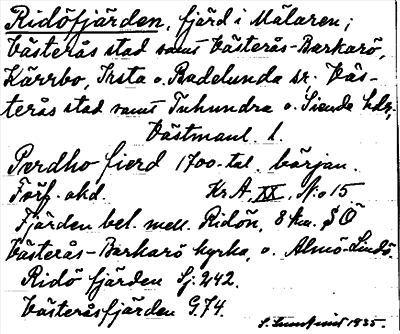 Ridöfjärden, fjärd i Mälaren;
Västerås stad samt Västerås-Barkarö,
Kärrbo, Irsta o. Badelunda sr. Väs-
terås stad samt Tuhundra o. Siende hdr,
Västmanl. l.
Perdho fierd 1700-tal. början.
Förf. okd. Kr. A. XX, No 15
Fjärden bel. mell. Ridön, 8 km. SÖ
Västerås-Barkarö kyrka, o. Almö-Lindö.
Ridö fjärden Sj. 242.
Västeråsfjärden G.74.
1935.